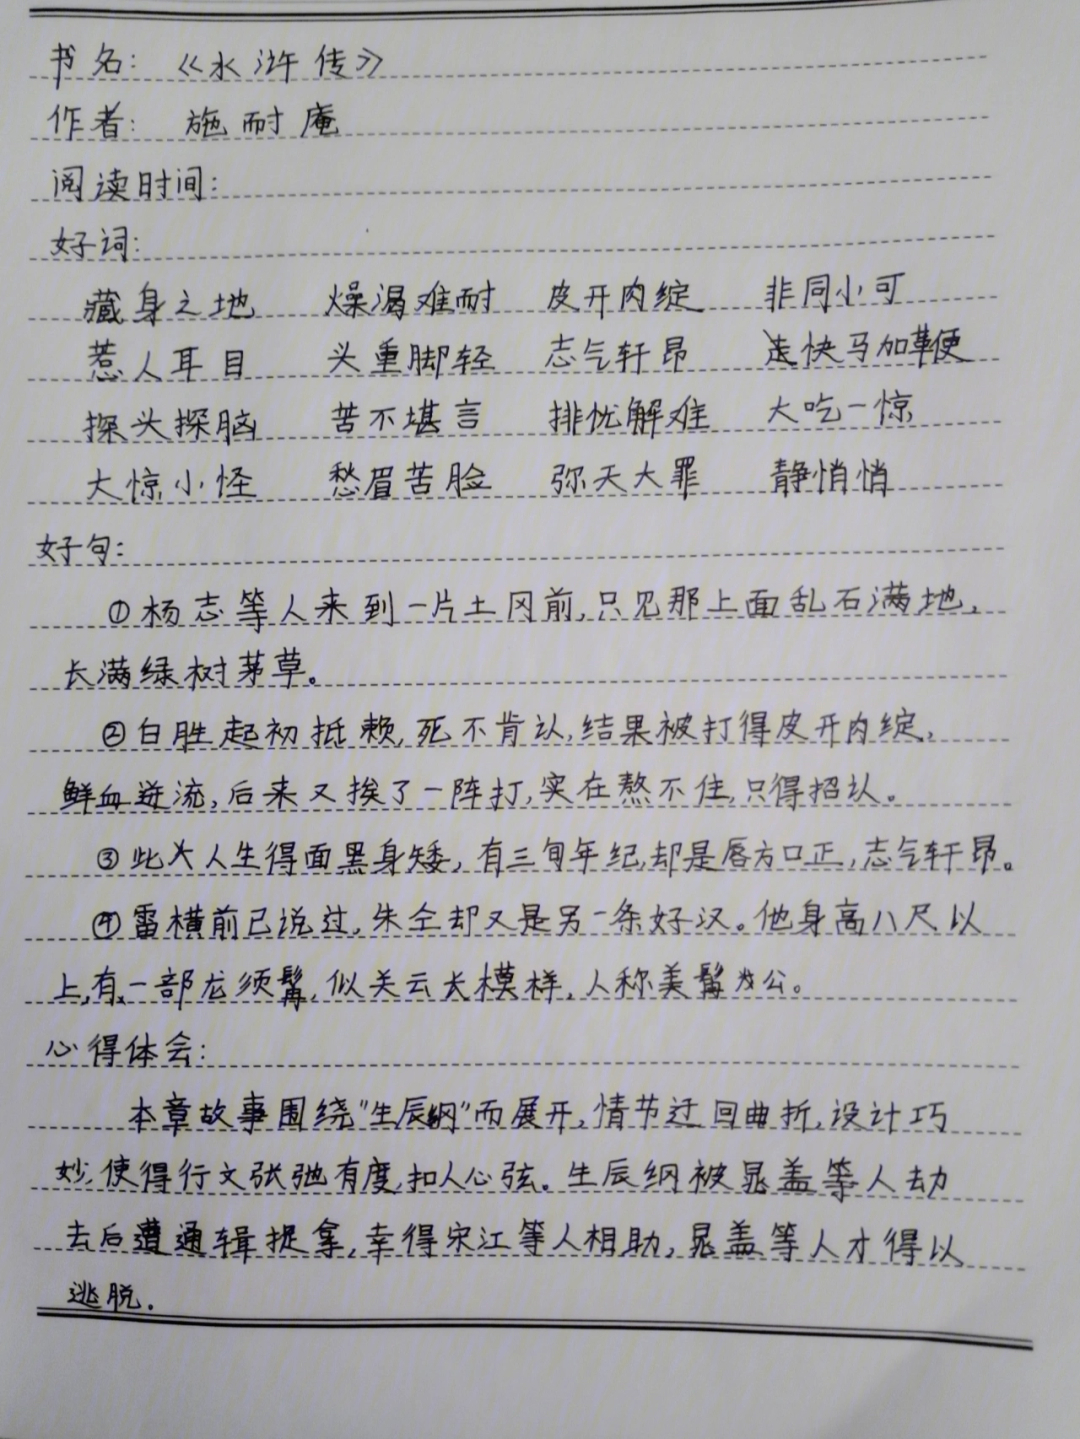 书名：《水浒传》
作者：施耐庵
阅读时间：
好词：
藏身之地 燥渴难耐 皮开肉绽 非同小可
惹人耳目 头重脚轻 志气轩昂 快马加鞭
探头探脑 苦不堪言 排忧解难 大吃一惊
大惊小怪 愁眉苦脸 弥天大罪 静悄悄
好句：
①杨志等人来到一片土冈前,只见那上面乱石满地,
长满绿树茅草。
②白胜起初抵赖,死不肯认,结果被打得皮开肉绽,
鲜血迸流,后来又挨了一阵打,实在熬不住,只得招认。
③此人生得面黑身矮,有三旬年纪,却是唇方口正,志气轩昂。
④雷横前已说过,朱仝却又是另一条好汉。他身高八尺以
上,有一部龙须髯,似关云长模样,人称美髯公。
心得体会：
本章故事围绕"生辰纲"而展开,情节迂回曲折,设计巧
妙,使得行文张弛有度,扣人心弦。生辰纲被晁盖等人劫
去后遭通辑捉拿,幸得宋江等人相助,晁盖等人才得以
逃脱.